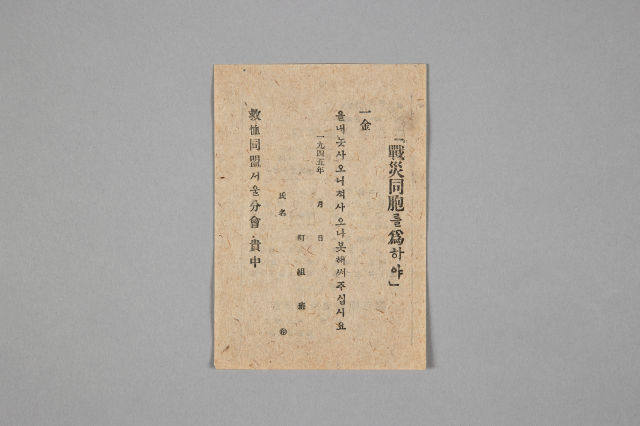 「戰災同胞를 爲하야」
一金
을내놋사오니 적사오나 봇해써주십시요
一九四五年 月 日
町 組 班
氏名 ㊞
救恤同盟서울分會 貴中